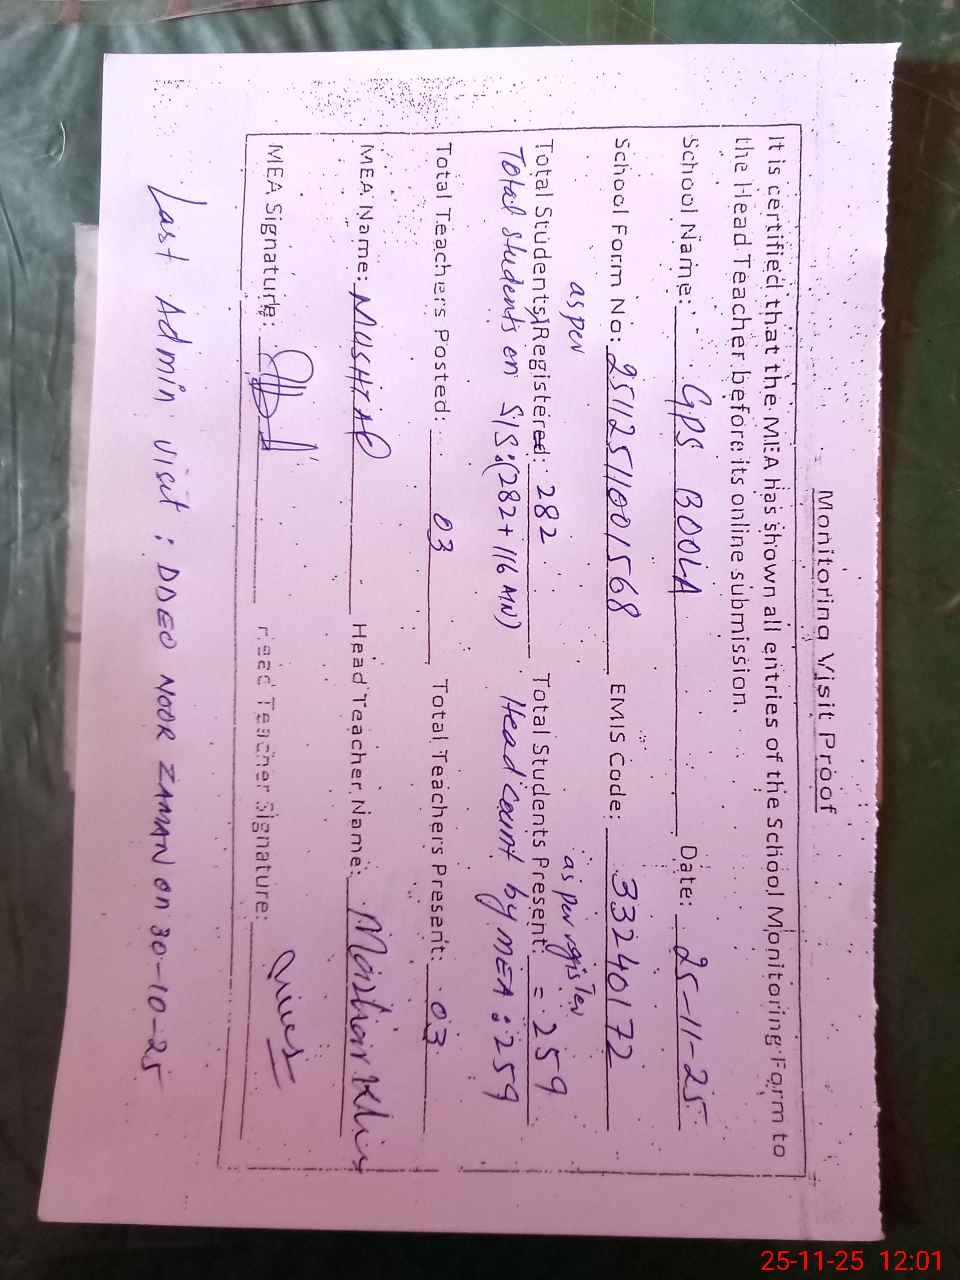 Monitoring Visit Proof
It is certified that the MEA has shown all entries of the School Monitoring Form to
the Head Teacher before its online submission.
School Name: GPS BOOLA Date: 25-11-25
School Form No: 25112511001568 EMIS Code: 33240172
as per as per register
Total Students Registered: 282 Total Students Present: = 259
Total Students on SIS:(282+116 MN) Head Count by MEA: 259
Total Teachers Posted: 03 Total Teachers Present: 03
MEA Name: MUSHTAQ Head Teacher Name:
MEA Signature: Head Teacher Signature:
Last Admin visit : DDEO NOOR ZAMAN on 30-10-25
25-11-25 12:01